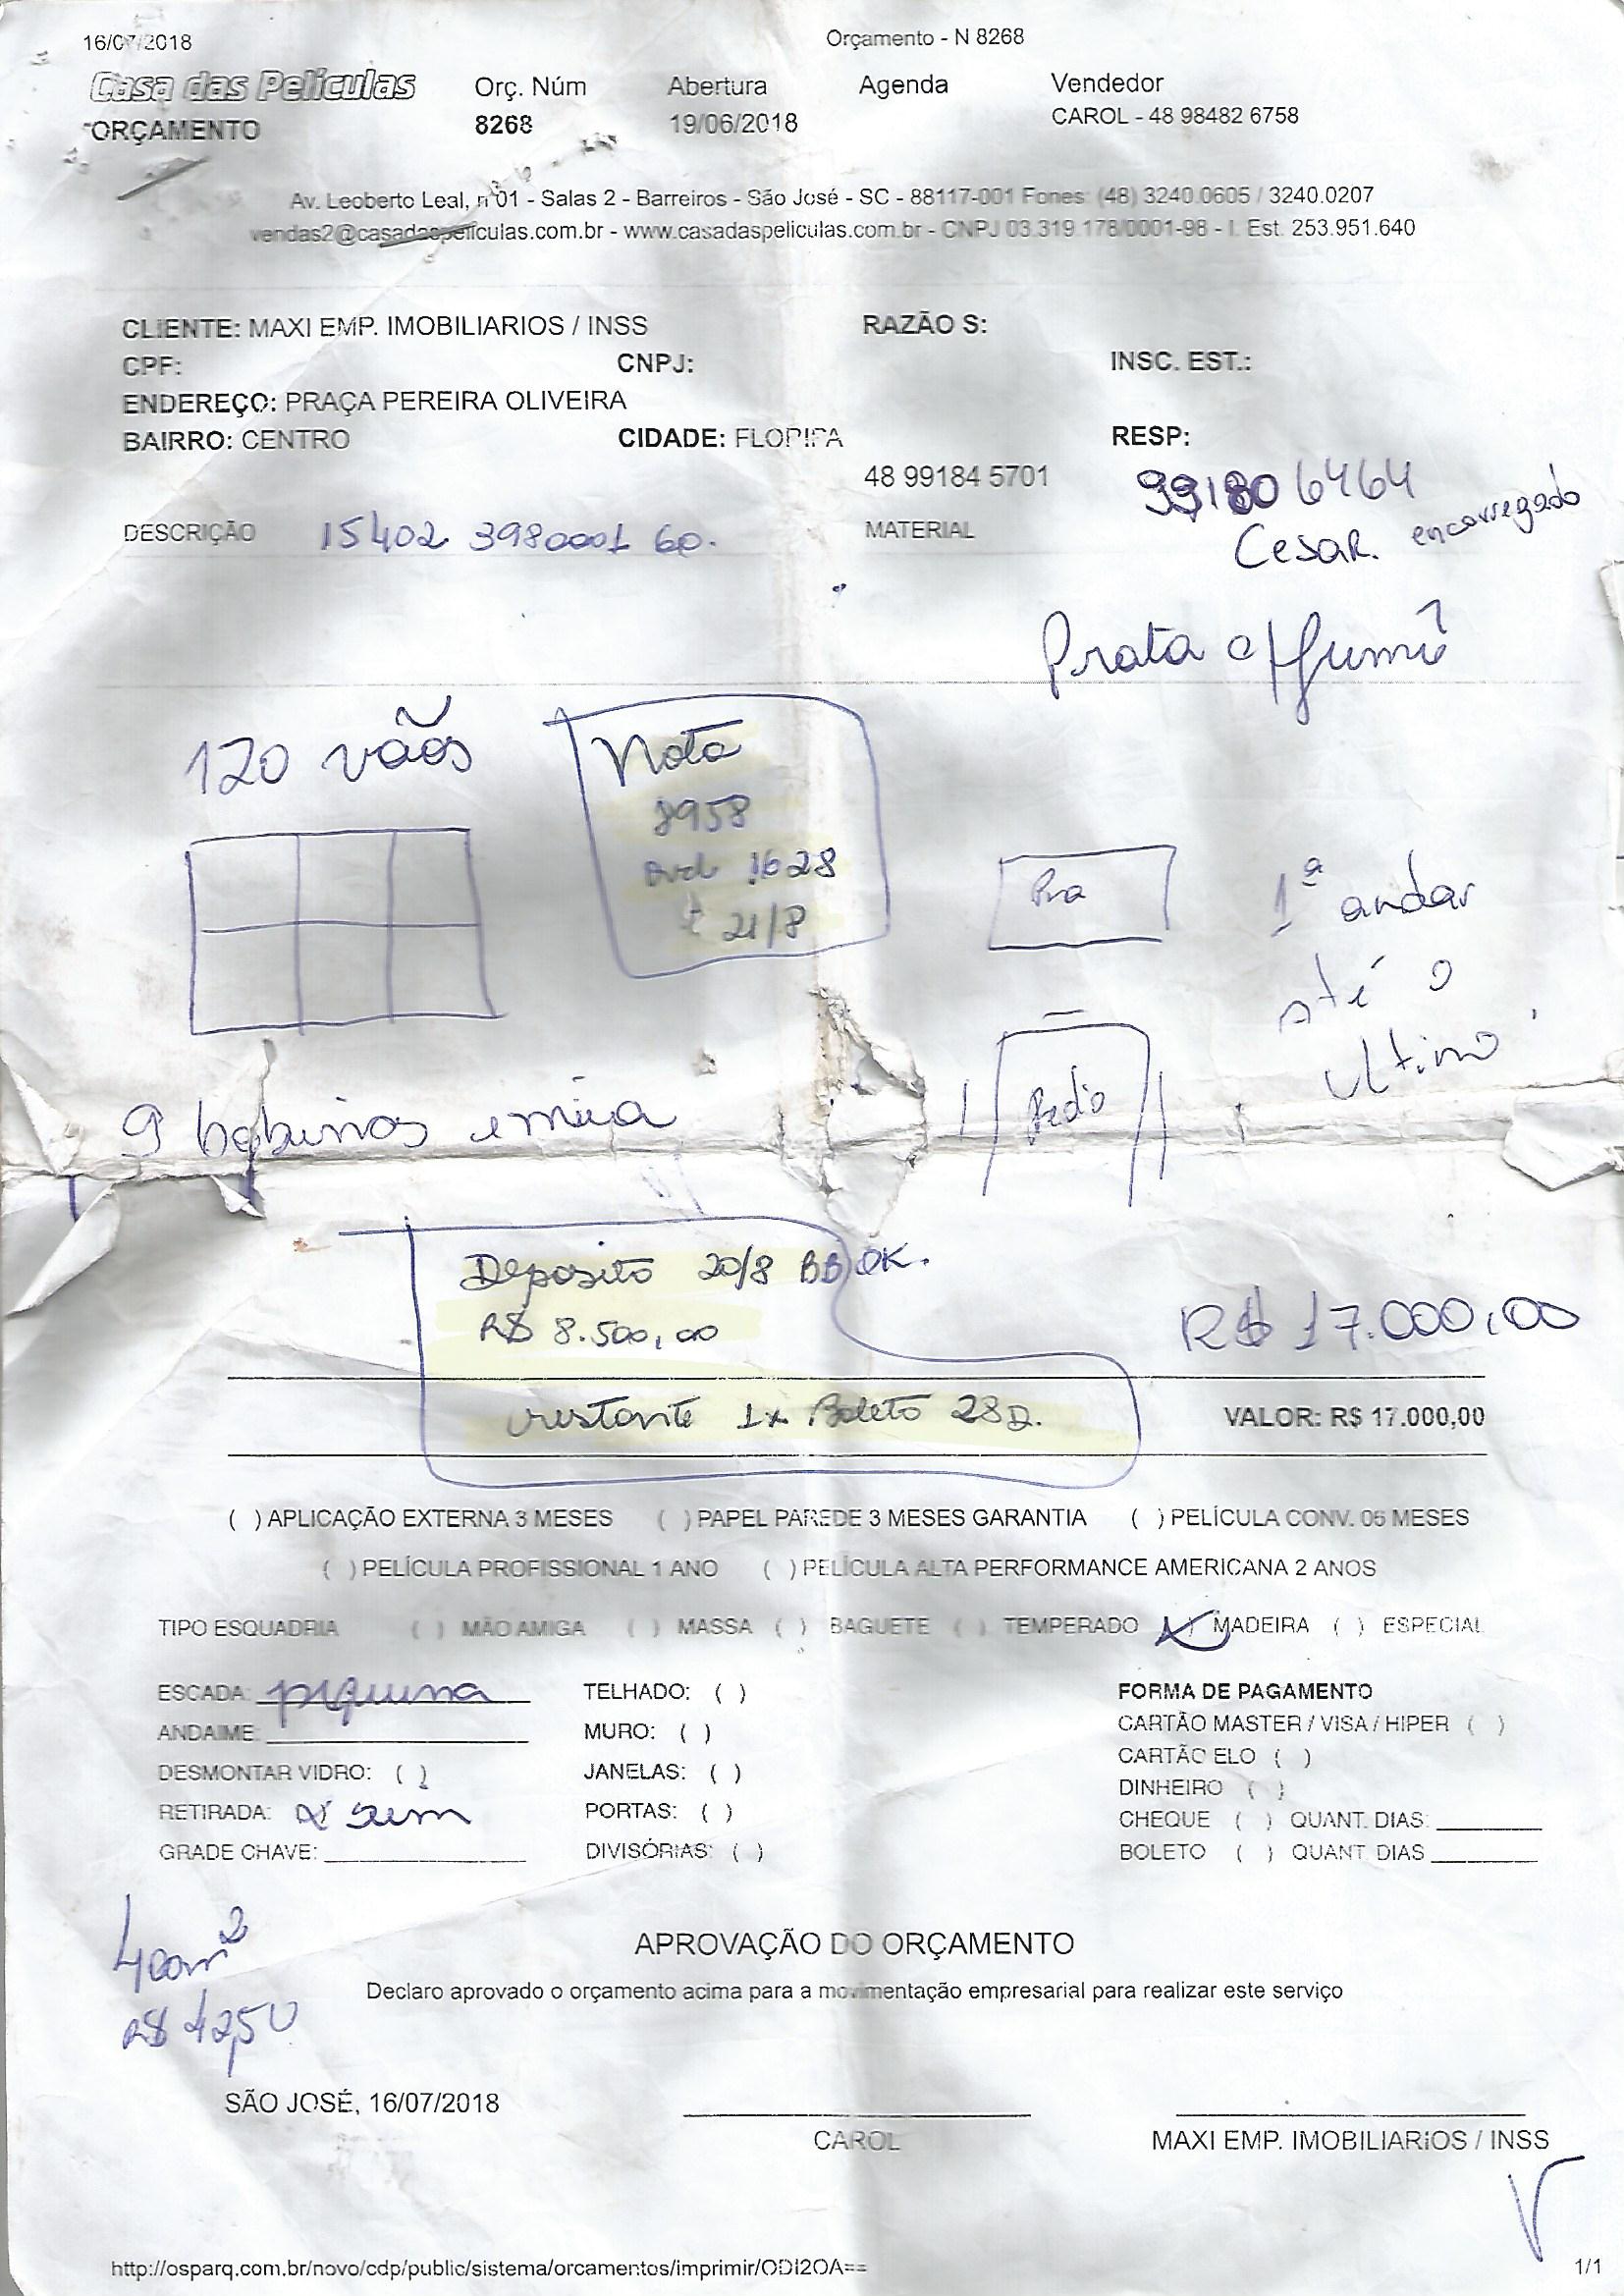 16/07/2018 Orçamento - N 8268
Casa das Películas Orç. Núm Abertura Agenda Vendedor
ORÇAMENTO 8268 19/06/2018 CAROL - 48 98482 6758
Av. Leoberto Leal, nº01 - Salas 2 - Barreiros - São José - SC - 88117-001 Fones: (48) 3240.0605 / 3240.0207
vendas2@casadaspeliculas.com.br - www.casadaspeliculas.com.br - CNPJ 03.319.178/0001-98 - I. Est. 253.951.640
CLIENTE: MAXI EMP. IMOBILIARIOS / INSS RAZÃO S:
CPF: CNPJ: INSC. EST.:
ENDEREÇO: PRAÇA PEREIRA OLIVEIRA
BAIRRO: CENTRO CIDADE: FLORIPA RESP:
48 99184 5701 991806464
DESCRIÇÃO 15402 3980001 60. MATERIAL Cesar. encarregado
Prata c/ fumê
120 vãos
Nota
8958
1628
21/8
1ª andar
até o
ultimo
9 bobinas e meia
Deposito 20/8 BB OK.
R$ 8.500,00
R$ 17.000,00
restante 1x Boleto 28D.
VALOR: R$ 17.000,00
( ) APLICAÇÃO EXTERNA 3 MESES ( ) PAPEL PAREDE 3 MESES GARANTIA ( ) PELÍCULA CONV. 06 MESES
( ) PELÍCULA PROFISSIONAL 1 ANO ( ) PELÍCULA ALTA PERFORMANCE AMERICANA 2 ANOS
TIPO ESQUADRIA ( ) MÃO AMIGA ( ) MASSA ( ) BAGUETE ( ) TEMPERADO (x) MADEIRA ( ) ESPECIAL
ESCADA: pequena TELHADO: ( ) FORMA DE PAGAMENTO
ANDAIME: MURO: ( ) CARTÃO MASTER / VISA / HIPER ( )
DESMONTAR VIDRO: ( ) JANELAS: ( ) CARTÃO ELO ( )
DINHEIRO ( )
RETIRADA: (x) sim PORTAS: ( ) CHEQUE ( ) QUANT. DIAS:
GRADE CHAVE: DIVISÓRIAS: ( ) BOLETO ( ) QUANT. DIAS
400m²
R$ 42,50
APROVAÇÃO DO ORÇAMENTO
Declaro aprovado o orçamento acima para a movimentação empresarial para realizar este serviço
SÃO JOSÉ, 16/07/2018
CAROL MAXI EMP. IMOBILIARIOS / INSS
http://osparq.com.br/novo/cdp/public/sistema/orcamentos/imprimir/ODI2OA== 1/1